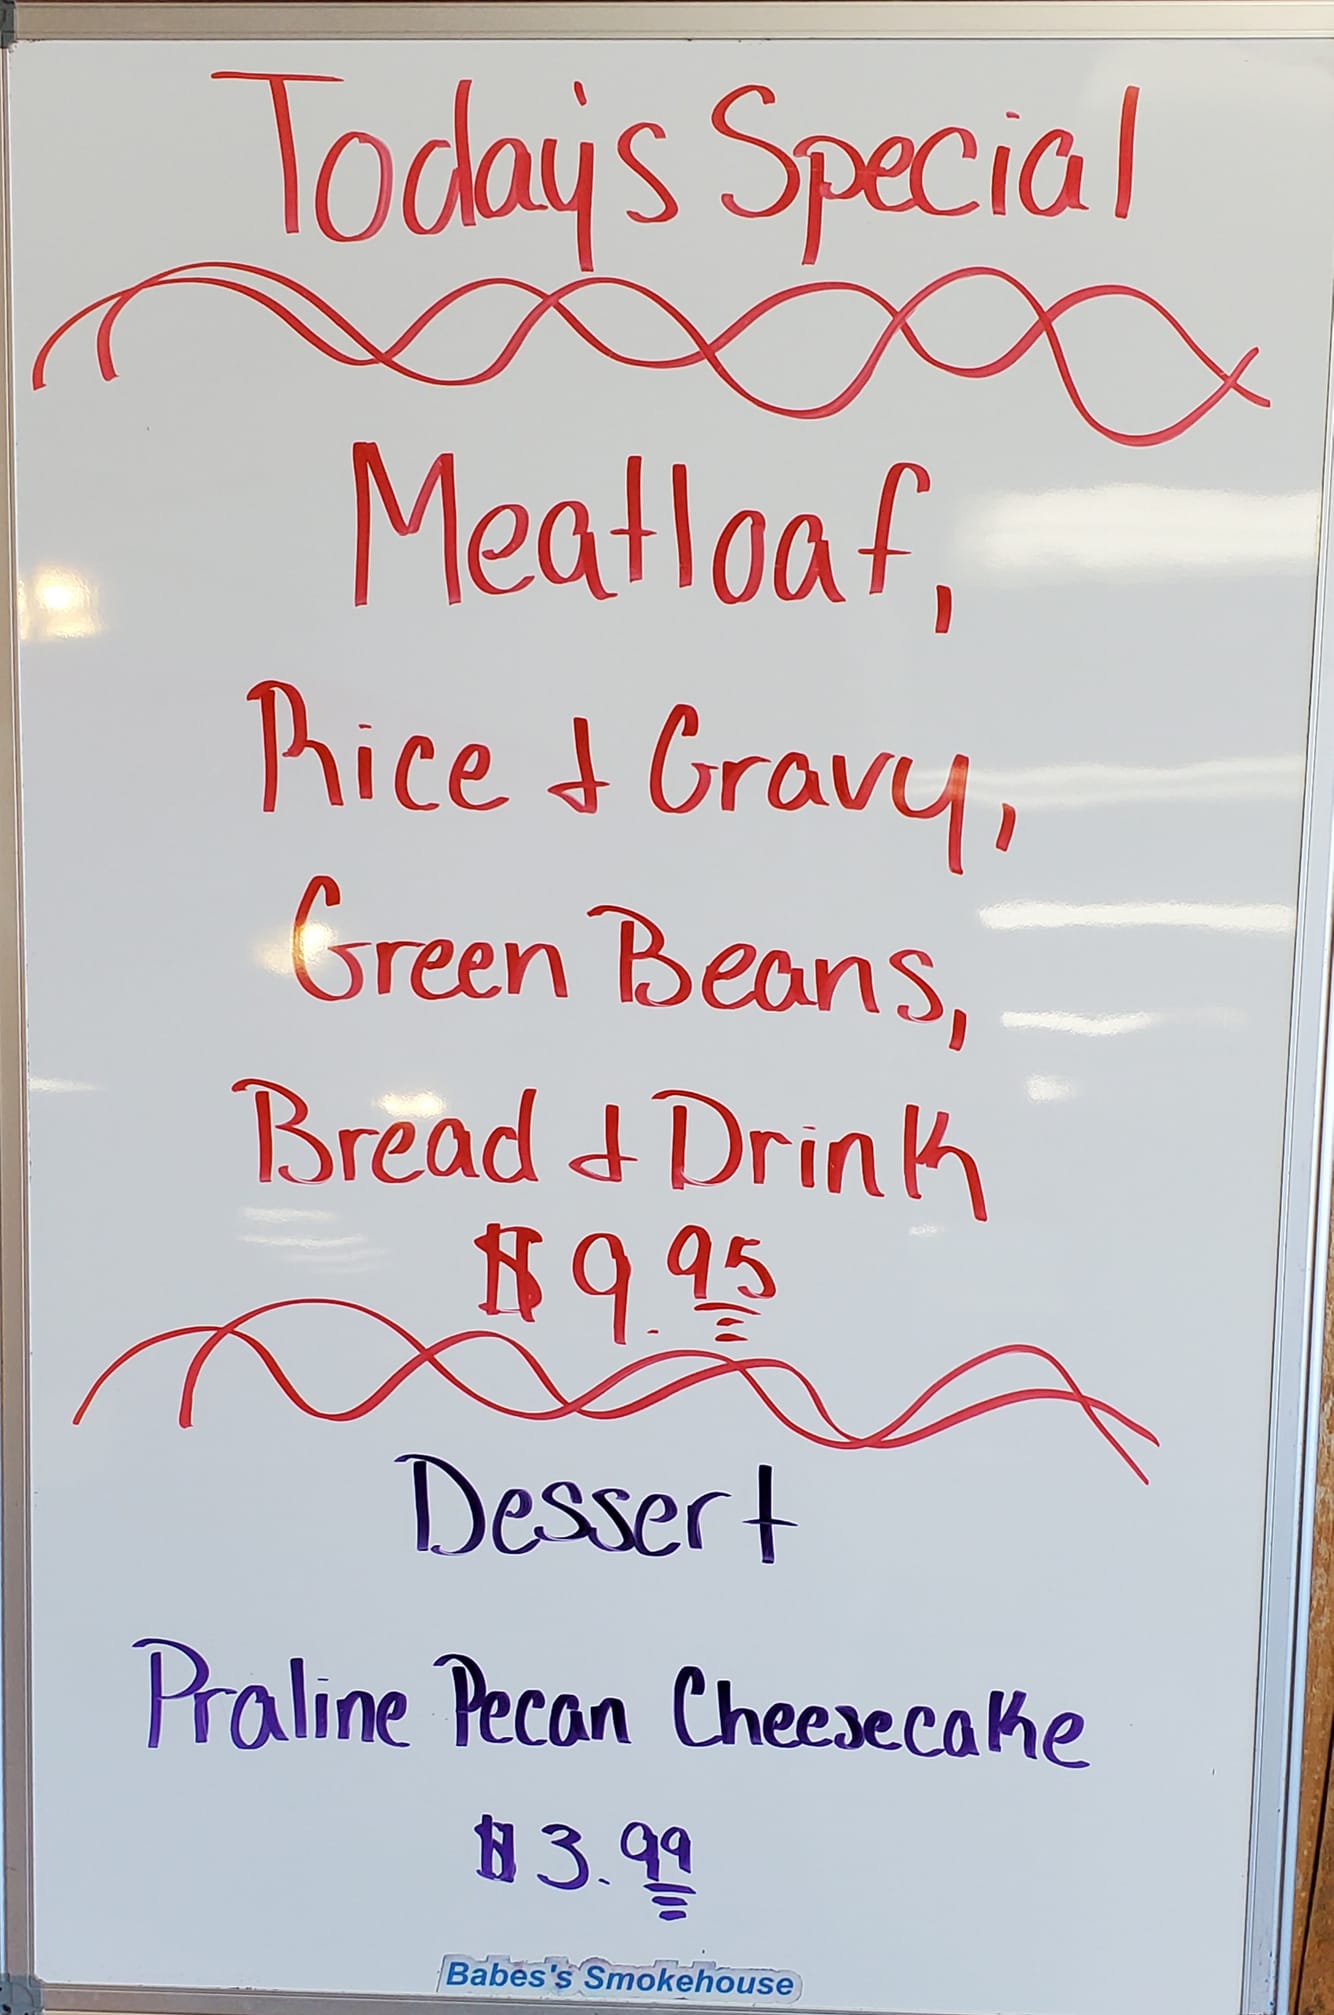 Today's Special
Meatloaf,
Rice & Gravy,
Green Beans,
Bread & Drink
$9.95
Dessert
Praline Pecan Cheesecake
$3.99
Babes's Smokehouse